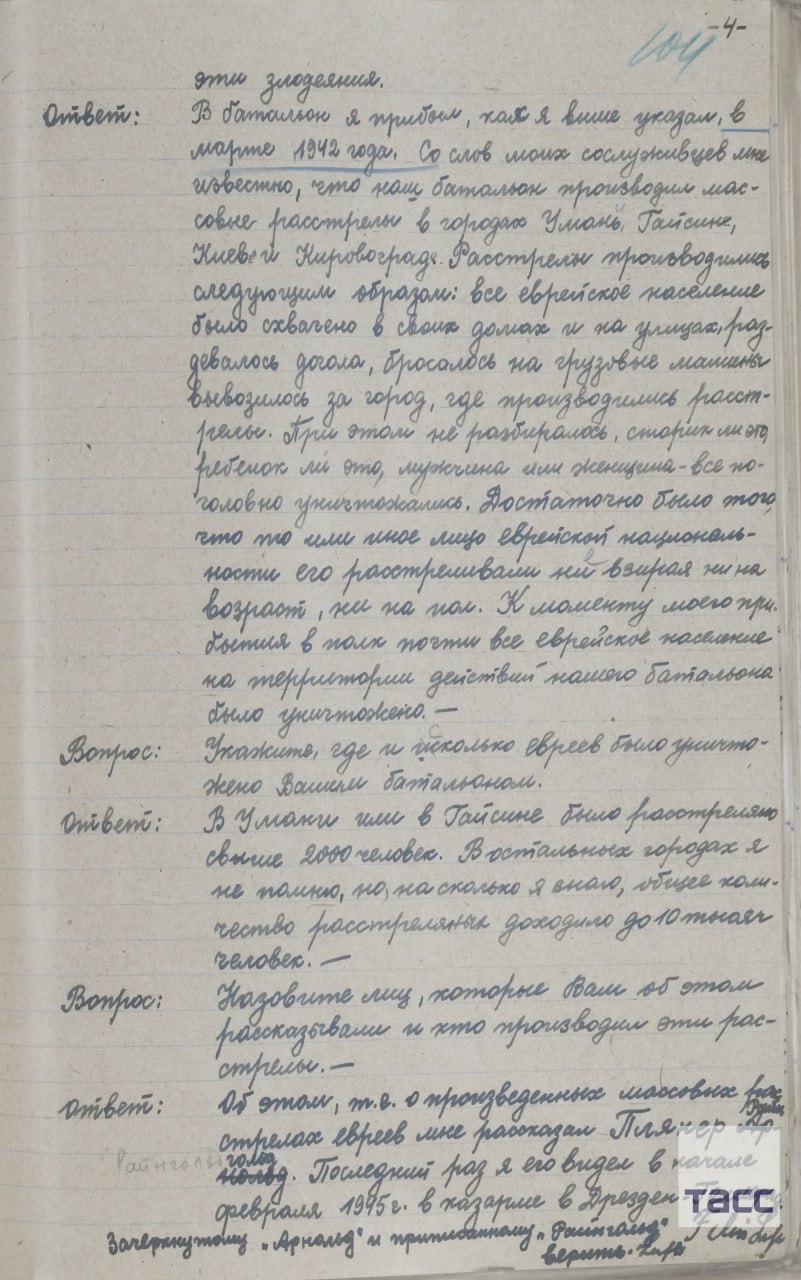 -4-
104
эти злодеяния.
Ответ: В батальон я прибыл, как я выше указал, в
марте 1942 года. Со слов моих сослуживцев мне
известно, что наш батальон производил мас-
совые расстрелы в городах Умань, Гайсине,
Киеве и Кировограде. Расстрелы производились
следующим образом: все еврейское население
было схвачено в своих домах и на улицах, раз-
девалось догола, бросалось на грузовые машины
вывозилось за город, где производились расст-
релы. При этом не разбиралось, старик ли это,
ребенок ли это, мужчина или женщина - все по-
головно уничтожались. Достаточно было того,
что то или иное лицо еврейской националь-
ности его расстреливали не взирая ни на
возраст, ни на пол. К моменту моего при-
бытия в полк почти все еврейское население
на территории действий нашего батальона
было уничтожено. —
Вопрос: Укажите, где и сколько евреев было уничто-
жено Вашим батальоном.
Ответ: В Умани или в Гайсине было расстреляно
свыше 2000 человек. В остальных городах я
не помню, но, на сколько я знаю, общее коли-
чество расстреляных доходило до 10 тысяч
человек. —
Вопрос: Назовите лиц, которые Вам об этом
рассказывали и кто производил эти рас-
стрелы. —
Ответ: Об этом, т.е. о произведенных массовых рас
стрелах евреев мне рассказал Плянер Райн
Ар-
Райнгольд гольд
нольд. Последний раз я его видел в начале
февраля 1945 г. в казарме в Дрезден-
Зачеркнутому „Арнольд" и приписанному „Райнгольд"
верить.
ТАСС